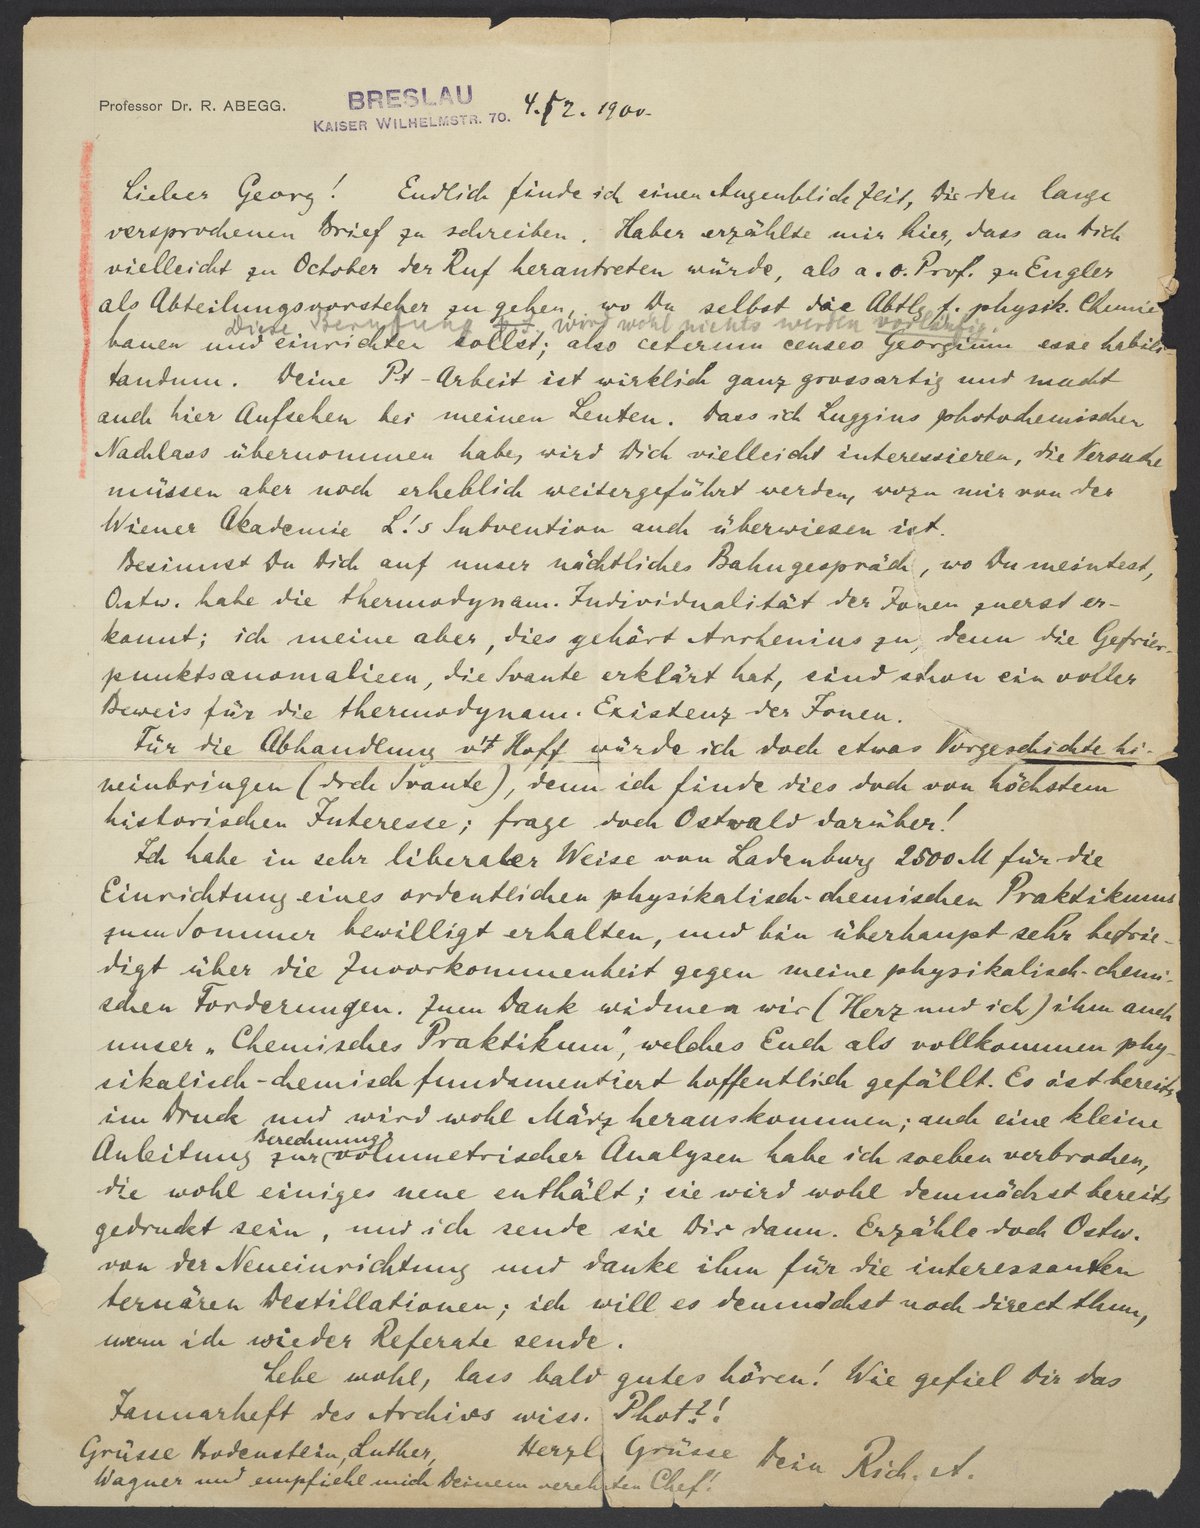 Professor Dr. R. ABEGG.
BRESLAU
KAISER WILHELMSTR. 70.
4. 2. 1900.
Lieber Georg! Endlich finde ich einen Augenblick Zeit, Dir den lange
versprochenen Brief zu schreiben. Haber erzählte mir hier, dass an Dich
vielleicht zu October der Ruf herantreten würde, als a. o. Prof. zu Engler
als Abteilungsvorsteher zu gehen, wo Du selbst die Abtlg f. physik. Chemie
Diese Berufung wird wohl nichts werden vorläufig.
bauen und einrichten sollst; also ceterum censeo Georgium esse habili-
tandum. Deine Pt-Arbeit ist wirklich ganz grossartig und macht
auch hier Aufsehen bei meinen Leuten. Dass ich Luggins photochemischen
Nachlass übernommen habe, wird Dich vielleicht interessieren, die Versuche
müssen aber noch erheblich weitergeführt werden, wozu mir von der
Wiener Akademie L.'s Subvention auch überwiesen ist.
Besinnst Du Dich auf unser nächtliches Bahngespräch, wo Du meintest,
Ostw. habe die thermodynam. Individualität der Ionen zuerst er-
kannt; ich meine aber, dies gehört Arrhenius zu, denn die Gefrier-
punktsanomalieen, die Svante erklärt hat, sind schon ein voller
Beweis für die thermodynam. Existenz der Ionen.
Für die Abhandlung v't Hoff würde ich doch etwas Vorgeschichte hi-
neinbringen (drch Svante), denn ich finde dies doch von höchstem
historischen Interesse; frage doch Ostwald darüber!
Ich habe in sehr liberaler Weise von Ladenburg 2500 M für die
Einrichtung eines ordentlichen physikalisch-chemischen Praktikums
zum Sommer bewilligt erhalten, und bin überhaupt sehr befrie-
digt über die Zuvorkommenheit gegen meine physikalisch-chemi-
schen Forderungen. Zum Dank widmen wir (Herz und ich) ihm auch
unser „Chemisches Praktikum", welches Euch als vollkommen phy-
sikalisch-chemisch fundamentiert hoffentlich gefällt. Es ist bereits
im Druck und wird wohl März herauskommen; auch eine kleine
Berechnung
Anleitung zur volumetrischer Analysen habe ich soeben verbrochen,
die wohl einiges neue enthält; sie wird wohl demnächst bereits
gedruckt sein, und ich sende sie Dir dann. Erzähle doch Ostw.
von der Neueinrichtung und danke ihm für die interessanten
ternären Destillationen; ich will es demnächst noch direct thun,
wenn ich wieder Referate sende.
Lebe wohl, lass bald gutes hören! Wie gefiel Dir das
Januarheft des Archivs wiss. Phot?!
Grüsse Bodenstein, Luther, Herzl. Grüsse Dein Rich. A.
Wagner und empfiehl mich Deinem verehrten Chef!